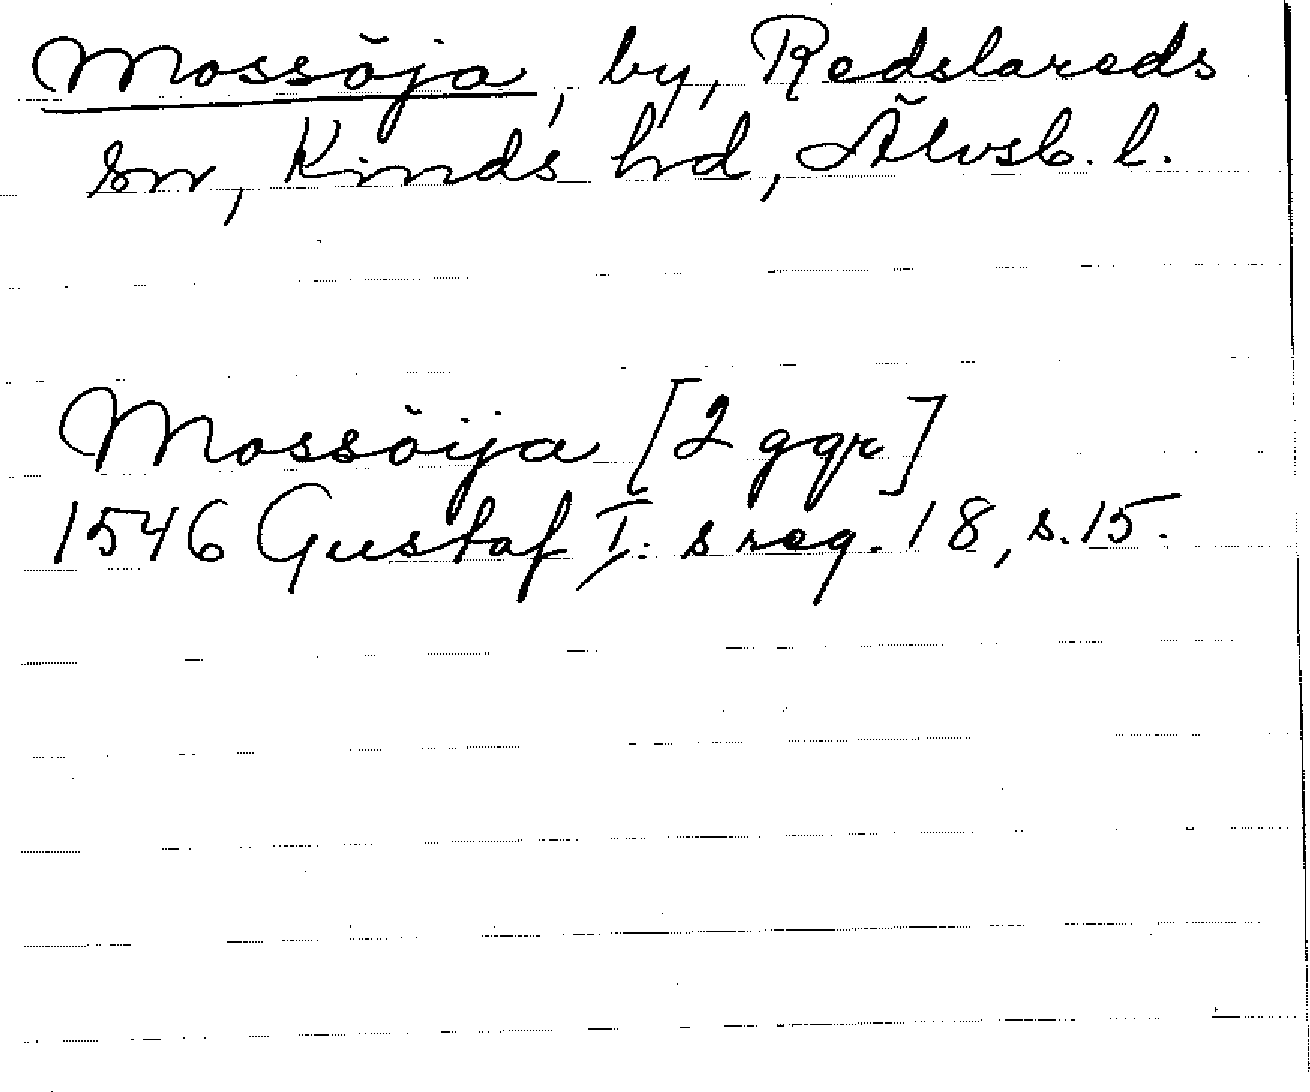 Mossöja, by, Redslareds
sn, Kinds hd, Älvsb. l.
Mossöija [2 ggr]
1546 Gustaf I:s reg. 18, s. 15.